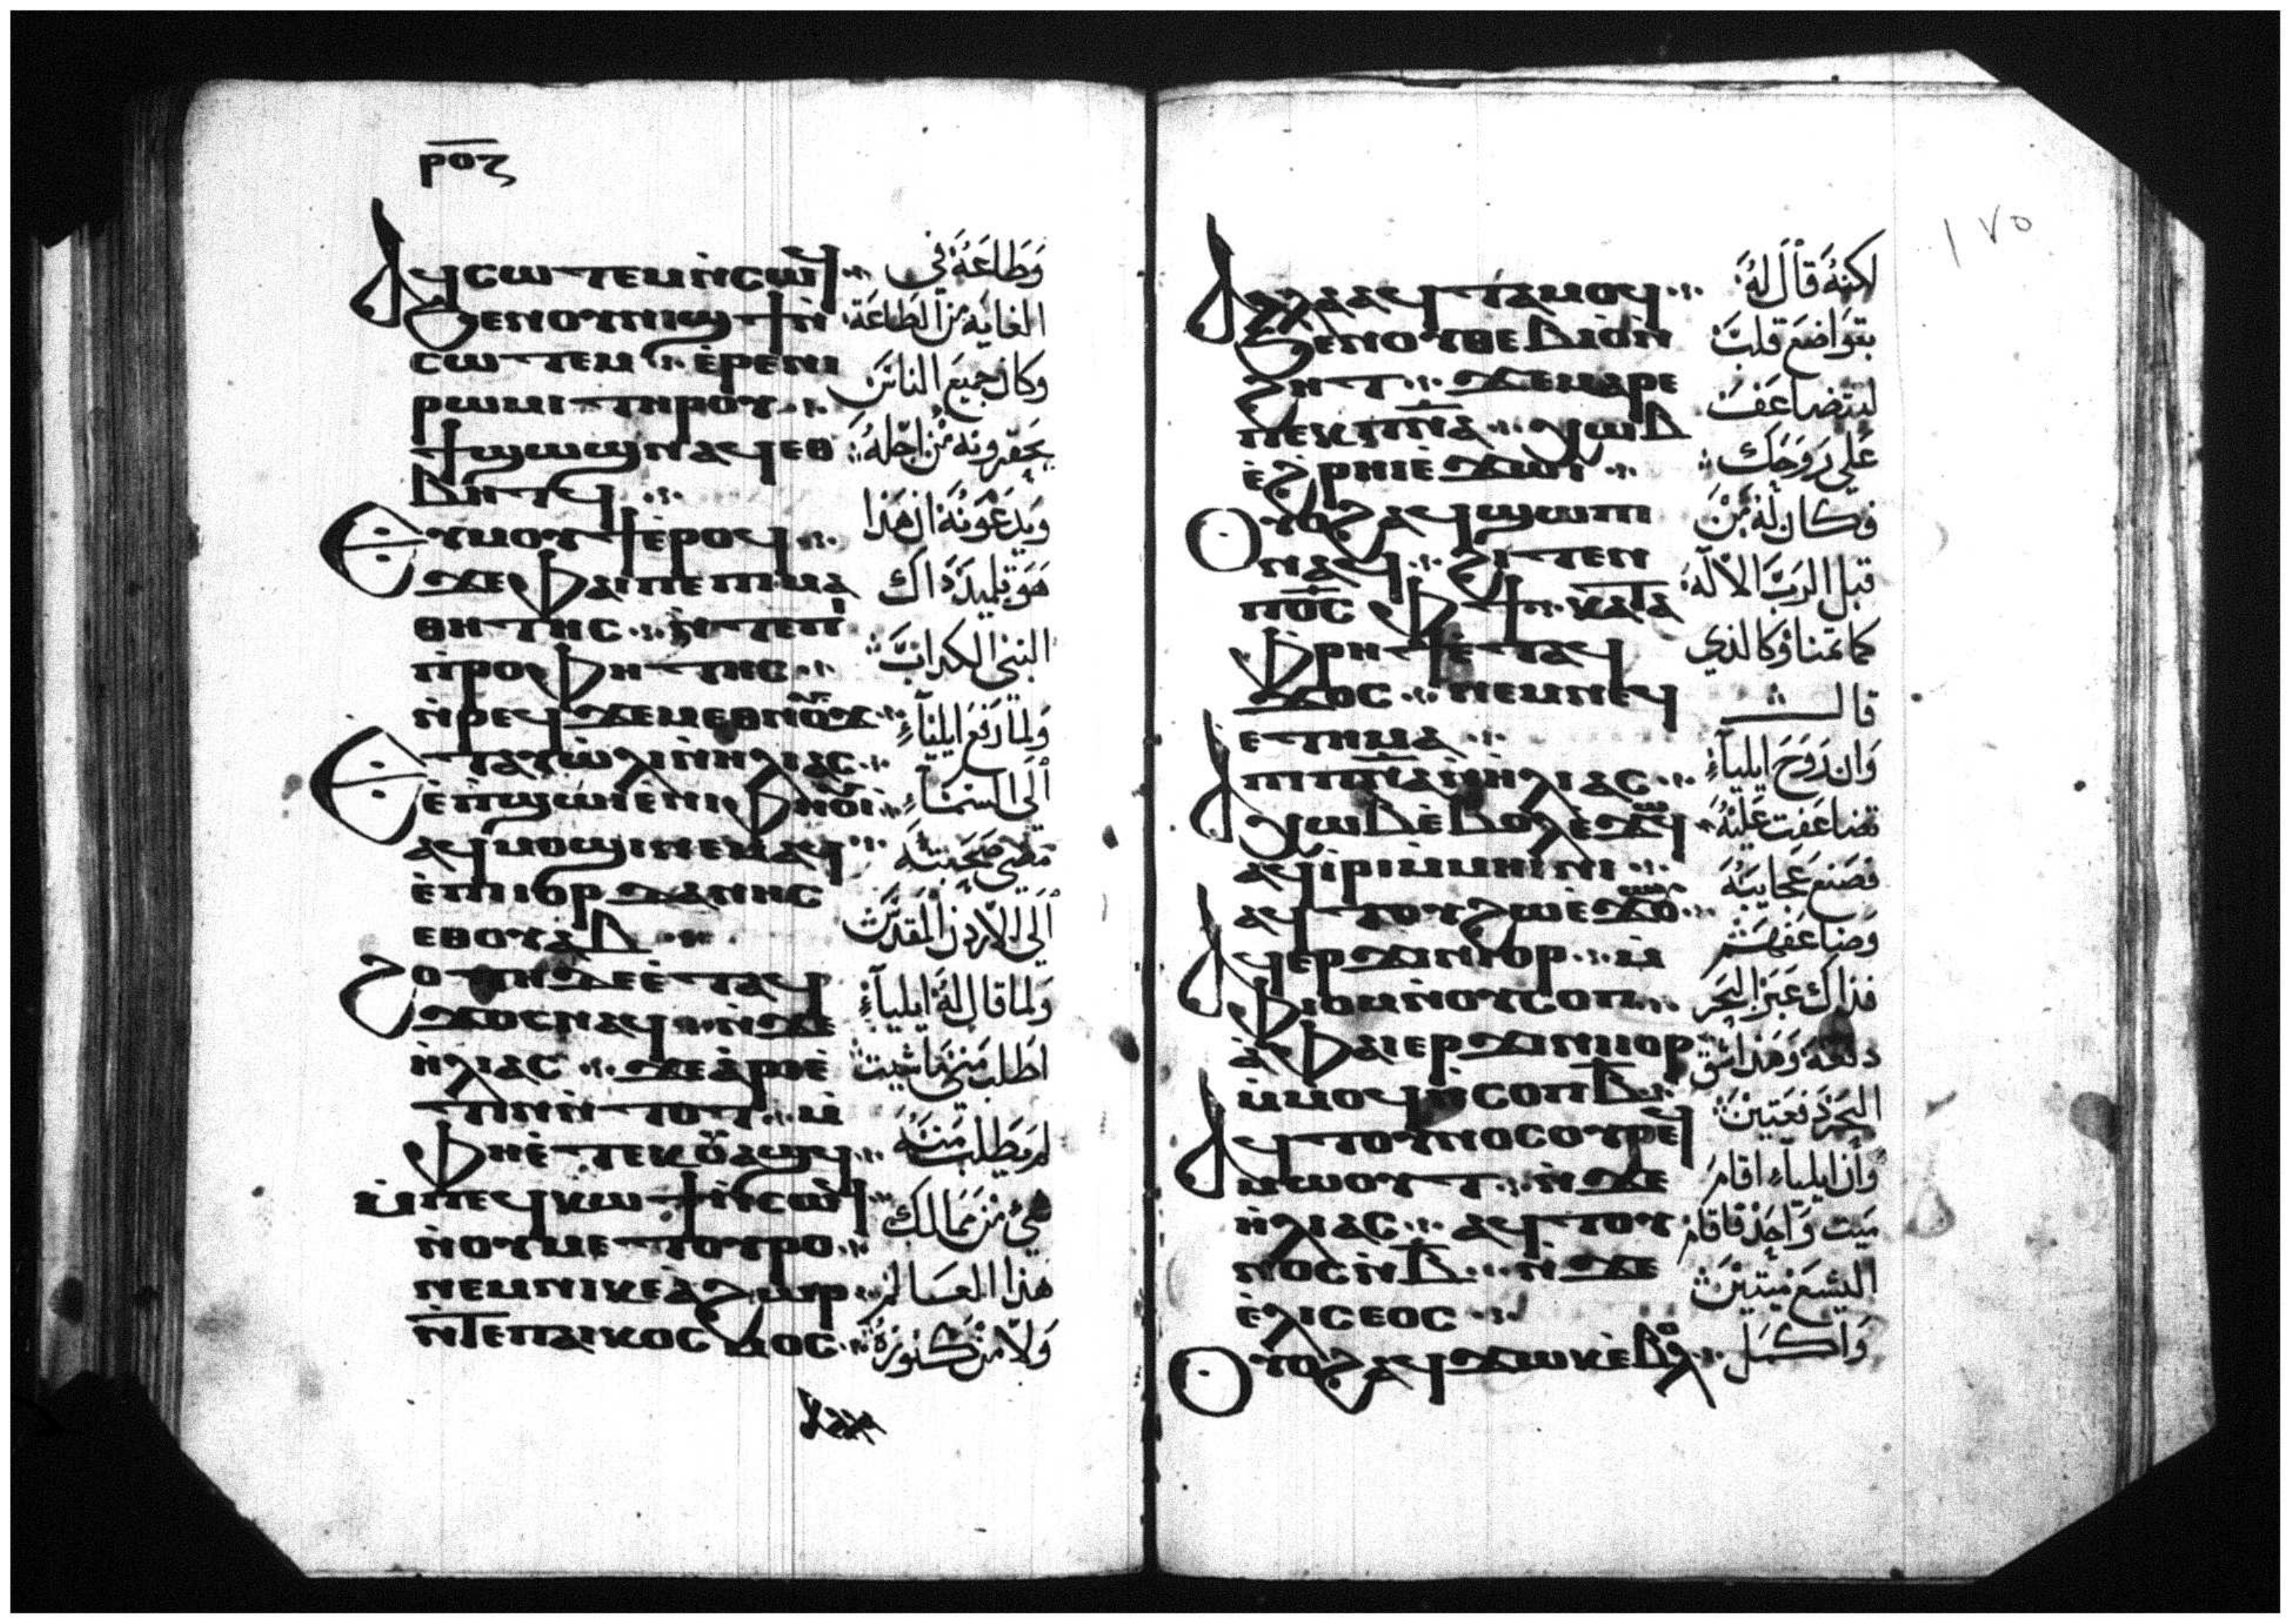 ⲣⲟⲍ
Ⲁϥⲥⲱⲧⲉⲙ ⲛ̀ⲥⲱϥ
ϧⲉⲛⲟⲩⲛⲓϣϯ ⲛ̀
ⲥⲱⲧⲉⲙ ⲉ̀ⲣⲉⲛⲓ
ⲣⲱⲙⲓ ⲧⲏⲣⲟⲩ
ϯϣⲱϣ ⲛⲁϥ ⲉⲑ
ⲃⲏⲧϥ
Ⲉⲩⲙⲟⲩϯ ⲉ̀ⲣⲟϥ
ϫⲉ ⲫⲁⲓ ⲡⲉ ⲡⲓⲙⲁ
ⲑⲏⲧⲏⲥ ⲛ̀ⲧⲉ ⲡⲓ
ⲡⲣⲟⲫⲏⲧⲏⲥ
ⲛ̀ⲣⲉϥϫⲉⲙⲉⲑⲛⲟⲩϫ
Ⲉⲧⲁⲩⲱ̀ⲗⲓ ⲛ̀ⲏⲗⲓⲁⲥ
ⲉ̀ⲡϣⲱⲓ ⲉ̀ⲛⲓⲫⲏⲟⲩⲓ
ⲁϥⲙⲟϣⲓ ⲛⲉⲙⲁϥ
ⲉ̀ⲡⲓⲟⲣⲇⲁⲛⲏⲥ
ⲉⲑⲟⲩⲁⲃ
ϩⲟⲧⲏ ⲇⲉ ⲉ̀ⲧⲁϥ
ϫⲟⲥ ⲛⲁϥ ⲛ̀ϫⲉ
ⲏ̀ⲗⲓⲁⲥ ϫⲉ ⲁ̀ⲣⲓⲉ̀
ⲧⲓⲛ ⲛ̀ⲧⲟⲧ ⲙ̀
ⲫⲏⲉ̀ⲧⲉⲕⲟⲩⲁϣϥ
ⲙ̀ⲡⲉϥⲕⲱϯ ⲛ̀ⲥⲱϥ
ⲛ̀ⲟⲩⲙⲉⲧⲟⲩⲣⲟ
ⲛⲉⲙ ⲛⲓⲕⲉⲁ̀ϩⲱⲣ
ⲛ̀ⲧⲉ ⲡⲁⲓⲕⲟⲥⲙⲟⲥ
وطاعه في
الغايه من الطاعة
وكان جميع الناس
يحقرونه من اجله
ويدعونه ان هذا
هو تلميذ ذاك
النبي الكداب
ولما رفع ايلياء
الى السماء
مضى صحبته
الى الاردن المقدس
ولما قال له ايلياء
اطلب مني ما شيت
لم يطلب منه
شي من ممالك
هذا العالم
ولا من كنوزه
١٧٥
Ⲁⲗⲗⲁ ⲁϥⲧⲁⲙⲟϥ
ϧⲉⲛⲟⲩⲑⲉⲃⲓⲟ ⲛ̀
ϩⲏⲧ ϫⲉ ⲙⲁⲣⲉ
ⲡⲉⲕⲡⲛⲁ ⲕⲱⲃ
ⲉ̀ϩⲣⲏⲓ ⲉ̀ϫⲱⲓ
Ⲟⲩⲟϩ ⲁϥϣⲱⲡⲓ
ⲛⲁϥ ϩⲓⲧⲉⲛ
ⲡⲟⲥ ⲫϯ ⲕⲁⲧⲁ
ⲫⲣⲏϯ ⲉ̀ⲧⲁϥ
ϫⲟⲥ ⲛⲉⲙ ⲛⲉϥ
ⲉⲧⲏⲙⲁ
Ⲁ ⲡⲓⲡⲛⲁ ⲛ̀ⲏⲗⲓⲁⲥ
ⲕⲱⲃ ⲉ̀ⲃⲟⲗ ⲉ̀ϫⲱϥ
ⲁϥⲓ̀ⲣⲓ ⲛ̀ⲛⲓⲙⲏⲓⲛⲓ
ⲁϥⲧⲟⲩϩⲱ ⲉ̀ϫⲱⲟⲩ
Ⲁϥⲉⲣϫⲓⲛⲓⲟⲣ ⲙ̀
ⲫⲓⲟⲙ ⲛ̀ⲟⲩⲥⲟⲡ
ⲁ̀ ⲫⲁⲓ ⲉⲣϫⲓⲛⲓⲟⲣ
ⲙ̀ⲙⲟϥ ⲛ̀ⲥⲟⲡ ⲃ̅
Ⲁϥⲧⲟⲩⲛⲟⲥ ⲟⲩⲣⲉϥ
ⲙⲱⲟⲩⲧ ⲛ̀ϫⲉ
ⲏ̀ⲗⲓⲁⲥ ⲁϥⲧⲟⲩ
ⲛⲟⲥ ⲛ̀ⲃ̅ ⲛ̀ϫⲉ
ⲉ̀ⲗⲓⲥⲉⲟⲥ
Ⲟⲩⲟϩ ⲁϥϫⲱⲕ ⲉ̀ⲃⲟⲗ
لكنه قال له
بتواضع قلب
ليتضاعف
على روحك
فكان له من
قبل الرب الاله
كما تمنا وكالذي
قال
وان روح ايلياء
تضاعفت عليه
فصنع عجايبه
وضاعفهم
فذاك عبر البحر
دفعه وهذا شق
البحر دفعتين
وان ايلياء اقام
ميت واحد فاقام
اليشع ميتين
واكمل